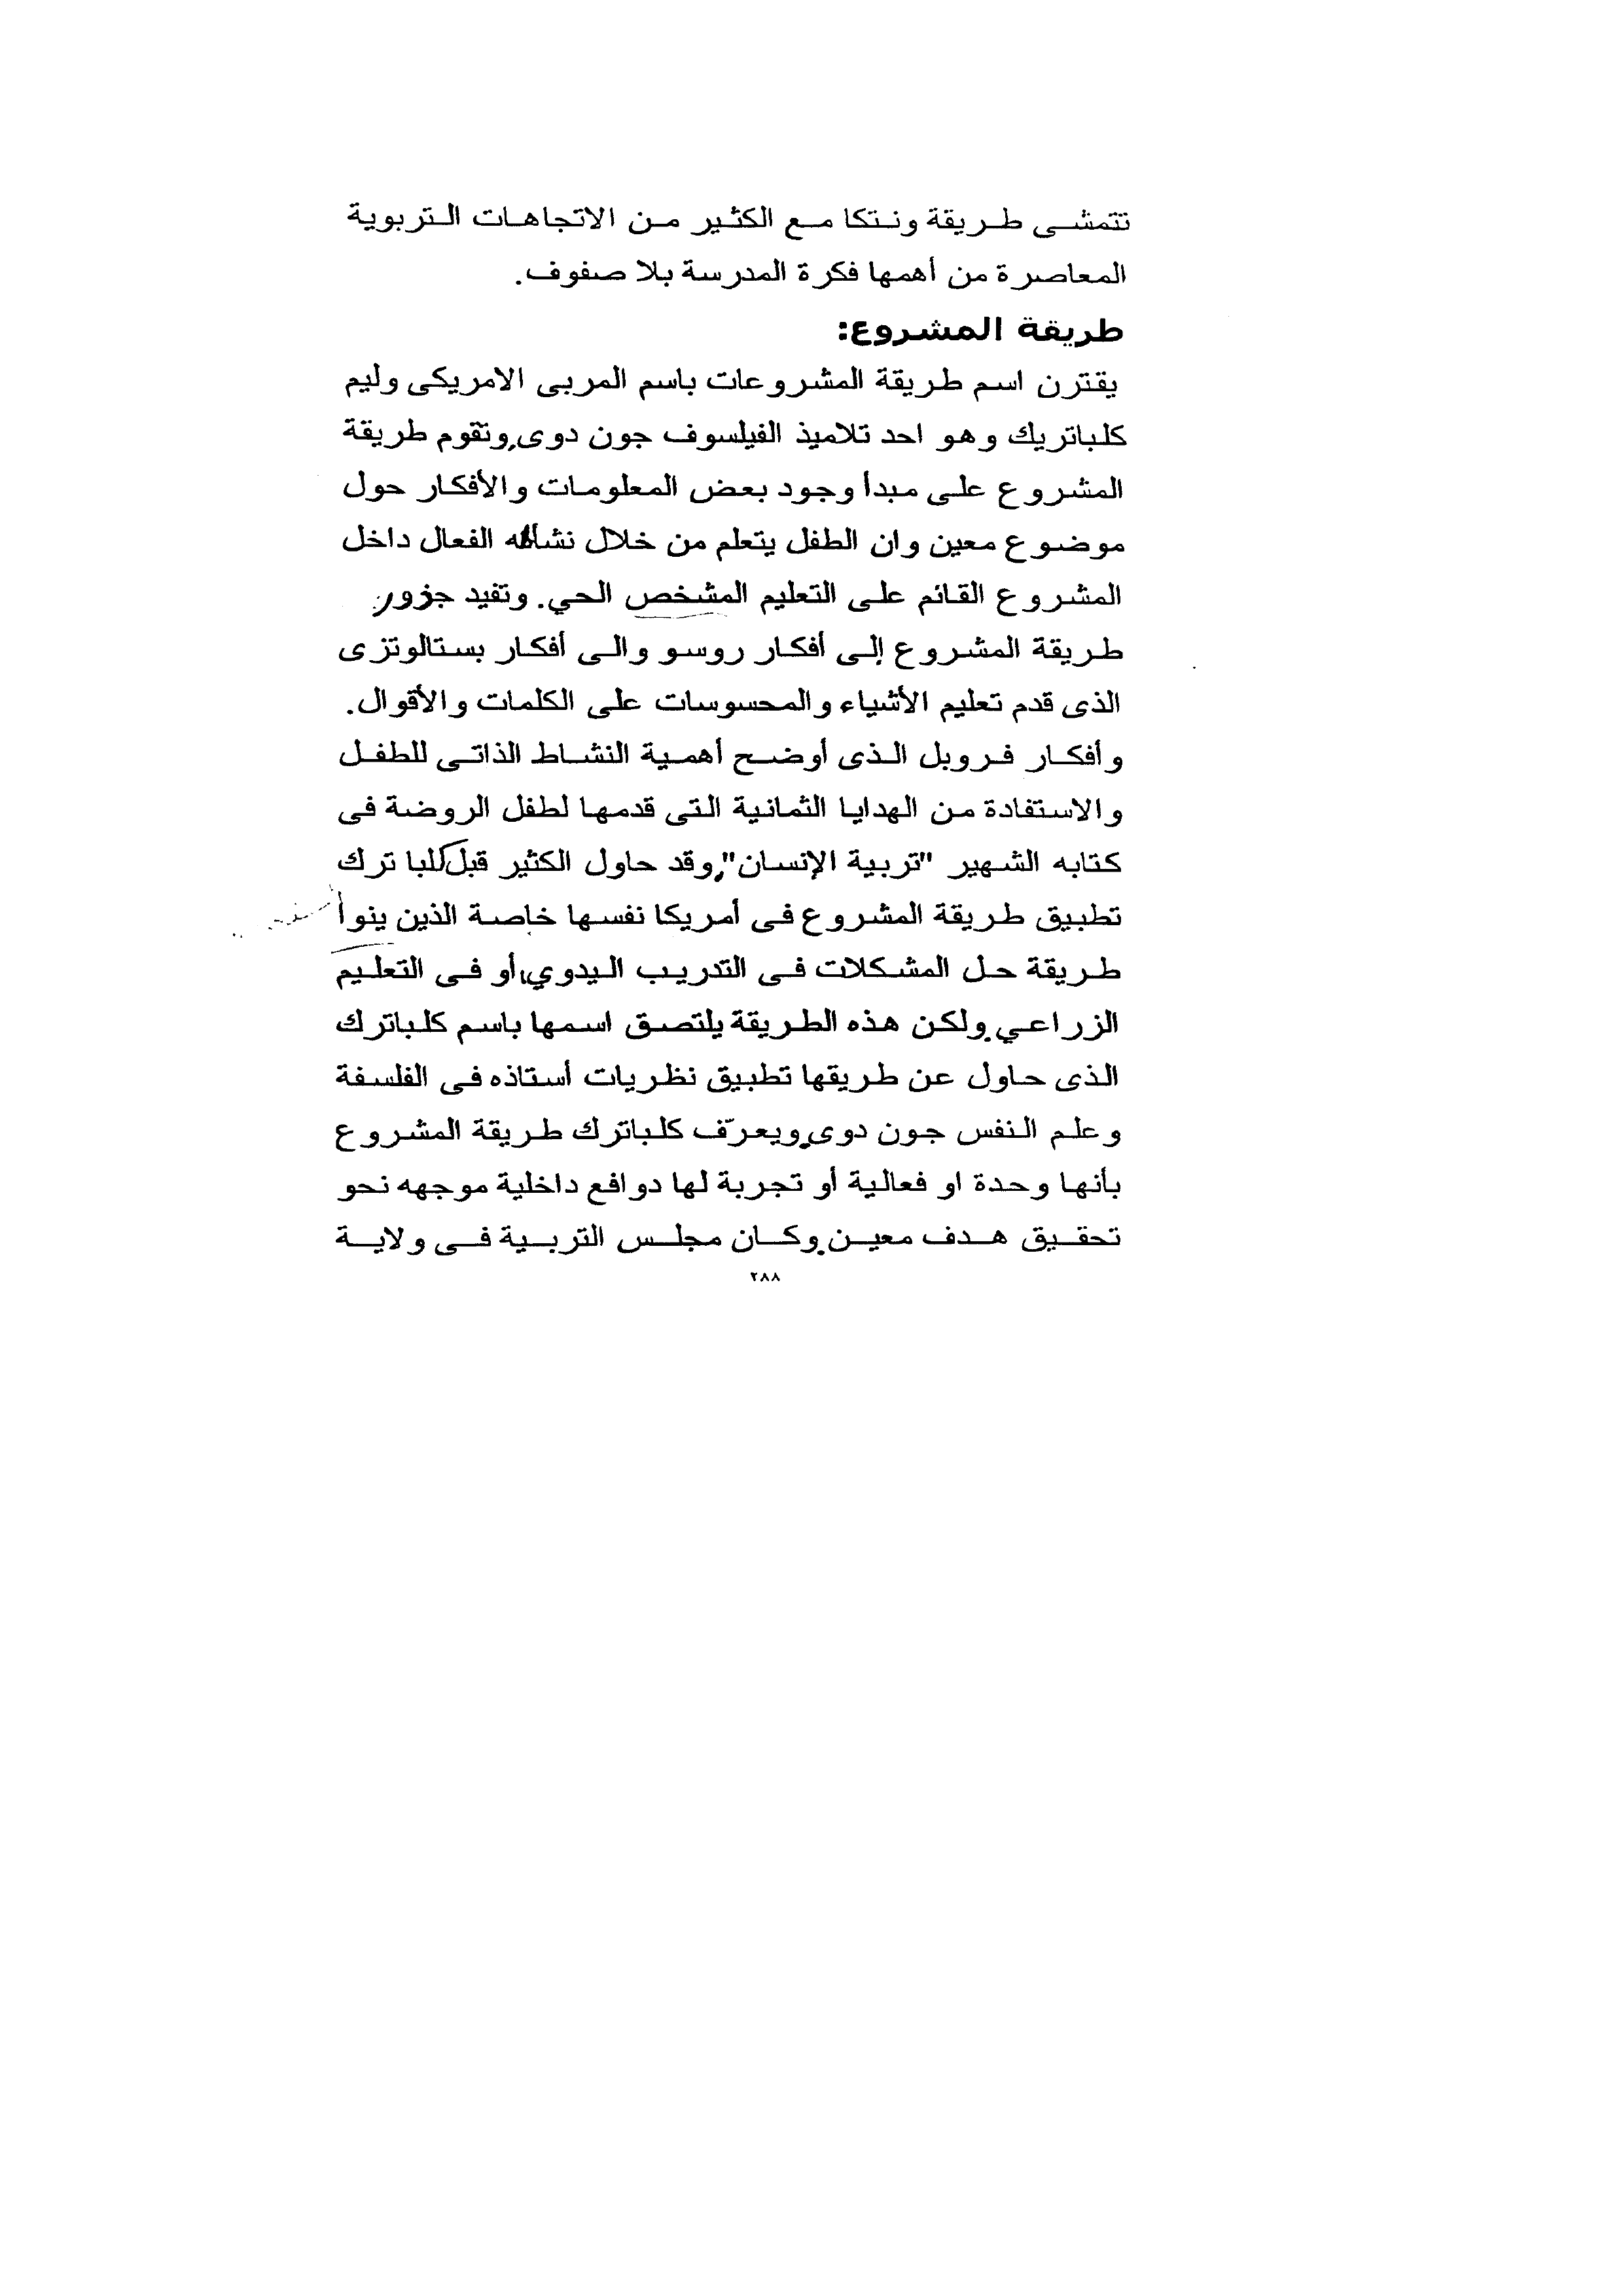 تتمشى طريقة ونتكا مع الكثير من الاتجاهات التربوية
المعاصرة من أهمها فكرة المدرسة بلا صفوف.
طريقة المشروع:
يقترن اسم طريقة المشروعات باسم المربى الامريكى وليم
كلباتريك وهو احد تلاميذ الفيلسوف جون دوى, وتقوم طريقة
المشروع على مبدأ وجود بعض المعلومات والأفكار حول
موضوع معين وان الطفل يتعلم من خلال نشاطه الفعال داخل
المشروع القائم على التعليم المشخص الحي. وتفيد جزور
طريقة المشروع إلى أفكار روسو والى أفكار بستالوتزى
الذى قدم تعليم الأشياء والمحسوسات على الكلمات والأقوال.
وأفكار فروبل الذى أوضح أهمية النشاط الذاتى للطفل
والاستفادة من الهدايا الثمانية التى قدمها لطفل الروضة فى
كتابه الشهير "تربية الإنسان", وقد حاول الكثير قبل كلبا ترك
تطبيق طريقة المشروع فى أمريكا نفسها خاصة الذين ينوا
طريقة حل المشكلات فى التدريب اليدوي, أو فى التعليم
الزراعي. ولكن هذه الطريقة يلتصق اسمها باسم كلباترك
الذى حاول عن طريقها تطبيق نظريات أستاذه فى الفلسفة
وعلم النفس جون دوى, ويعرّف كلباترك طريقة المشروع
بأنها وحدة او فعالية أو تجربة لها دوافع داخلية موجهه نحو
تحقيق هدف معين. وكان مجلس التربية فى ولاية
٢٨٨